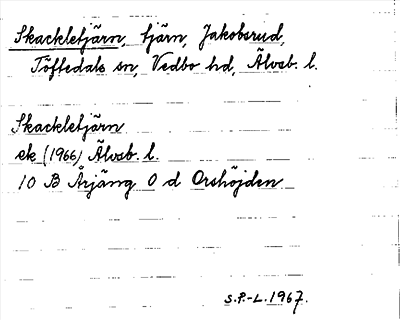 Skackletjärn, tjärn, Jakobsrud,
Töftedals sn, Vedbo hd, Älvsb. l.
Skackletjärn
ek (1966) Älvsb. l.
10 B Årjäng 0 d Orshöjden
S.P.-L. 1967.